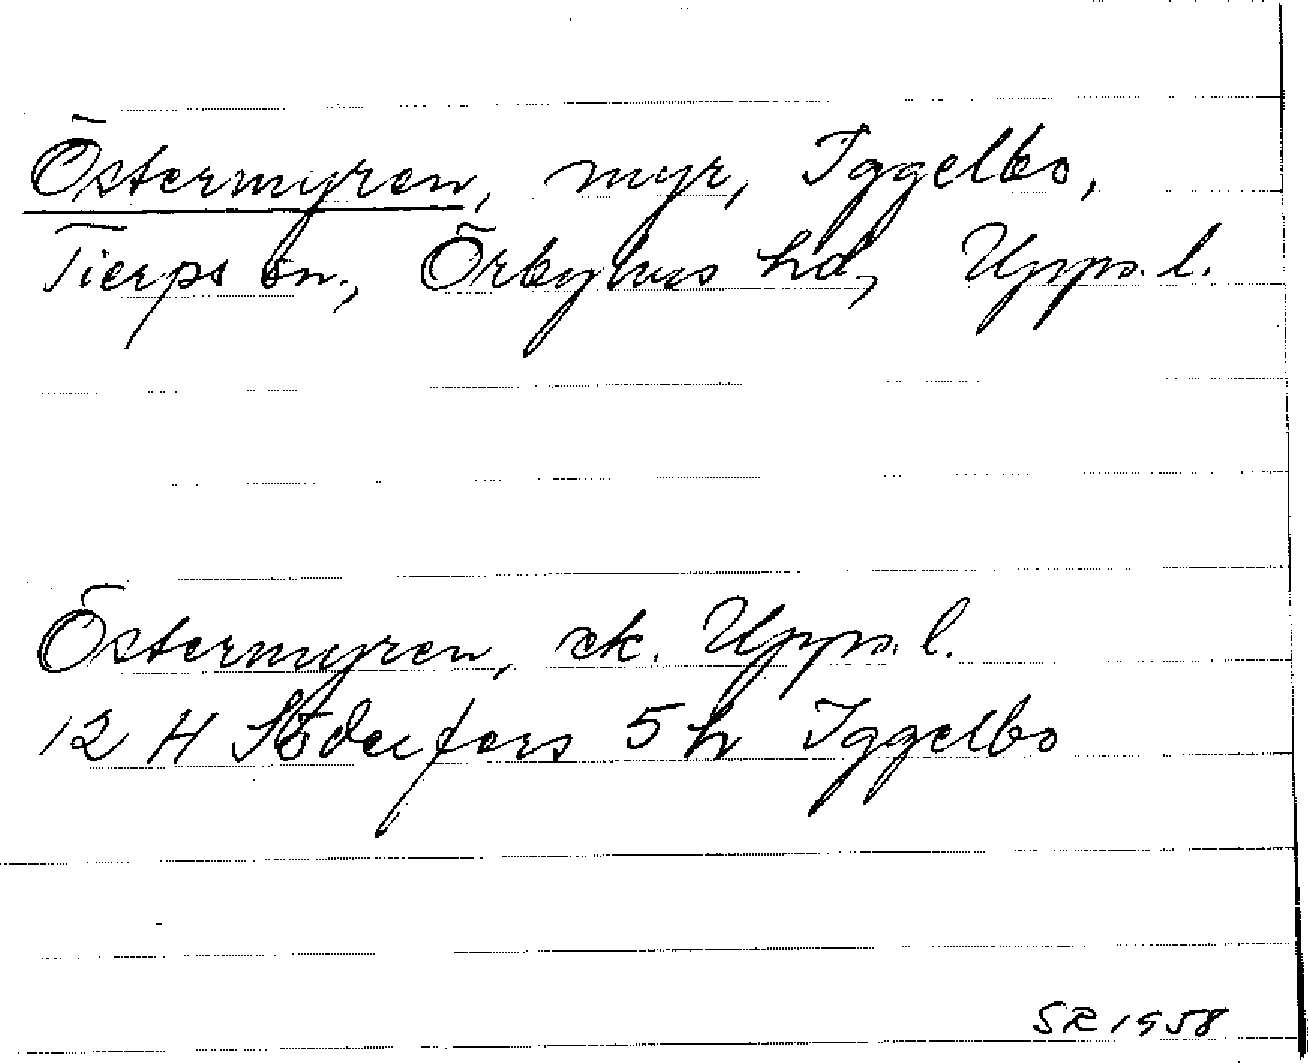 Östermyren, myr, Iggelbo,
Tierps sn., Örbyhus hd, Upps. l.
Östermyren, ek. Upps. l.
12 H Söderfors 5 h Iggelbo
SR 1958